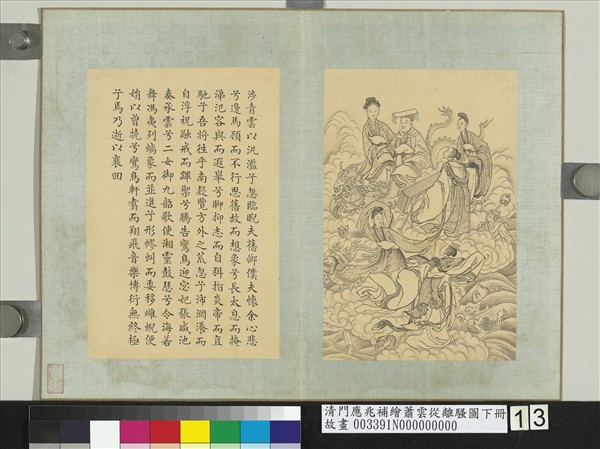 涉青雲以汎濫兮忽臨睨夫舊鄉僕夫懷余心悲
兮邊馬顧而不行思舊故而想象兮長太息而掩
涕氾容與而遐舉兮聊抑志而自弭指炎帝而直
馳兮吾將往乎南疑覽方外之荒忽兮沛潤瀁而
自浮祝融戒而蹕禦兮騰告鸞鳥迎宓妃張咸池
奏承雲兮二女御九韶歌使湘靈鼓瑟兮令海若
舞馮夷列螭象而並進兮形蟉虯而委移雌蜺便
娟以曾撓兮鸞鳥軒翥而翔飛音樂博衍無終極
兮焉乃逝以裴回
清門應兆補繪蕭雲從離騷圖下冊
故畫 003391N000000000
13